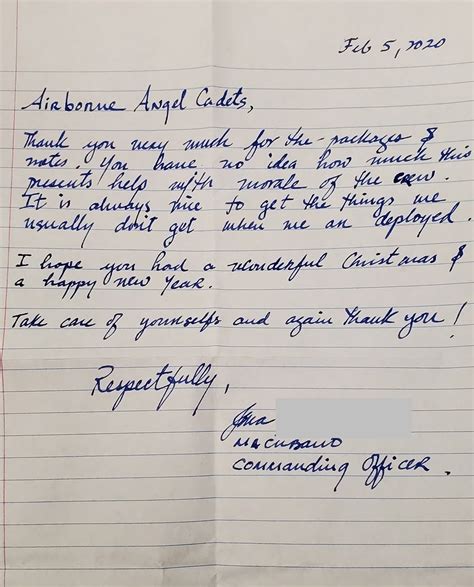 Feb 5, 2020
Airborne Angel Cadets,
Thank you very much for the packages &
notes. You have no idea how much this
presents help with morale of the crew.
It is always nice to get the things we
usually don't get when we are deployed.
I hope you had a wonderful Christmas &
a happy new year.
Take care of yourselfs and again thank you!
Respectfully,
Commanding Officer.